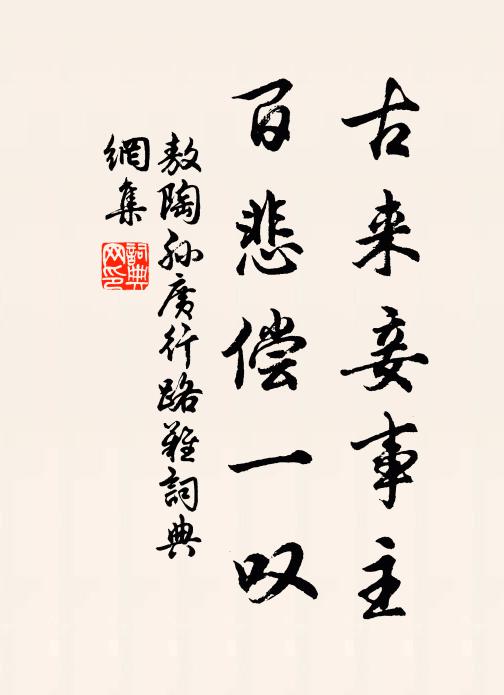 古来妾事主
百悲偿一叹
敖陶孙广行路難詞典
網集
詞典网印